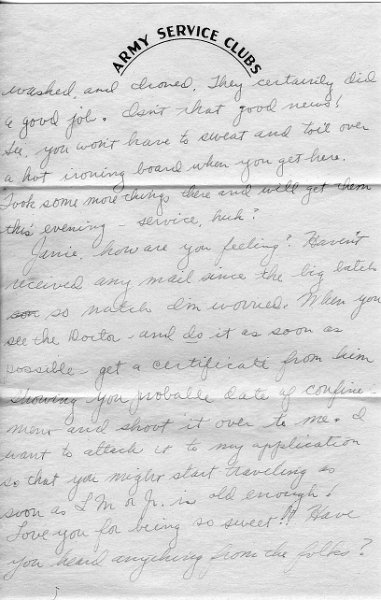 ARMY SERVICE CLUBS
washed, and ironed. They certainly did
a good job. Isn't that good news!
See, you won't have to sweat and toil over
a hot ironing board when you get here.
Took some more things there and we'll get them
this evening - service, huh?
Janie, how are you feeling? Haven't
received any mail since the big batch
so natch I'm worried. When you
see the Doctor - and do it as soon as
possible - get a certificate from him
showing you probable date of confine-
ment and shoot it over to me. I
want to attach it to my application
so that you might start traveling as
soon as L M or Jr. is old enough!
Love you for being so sweet!! Have
you heard anything from the folks?